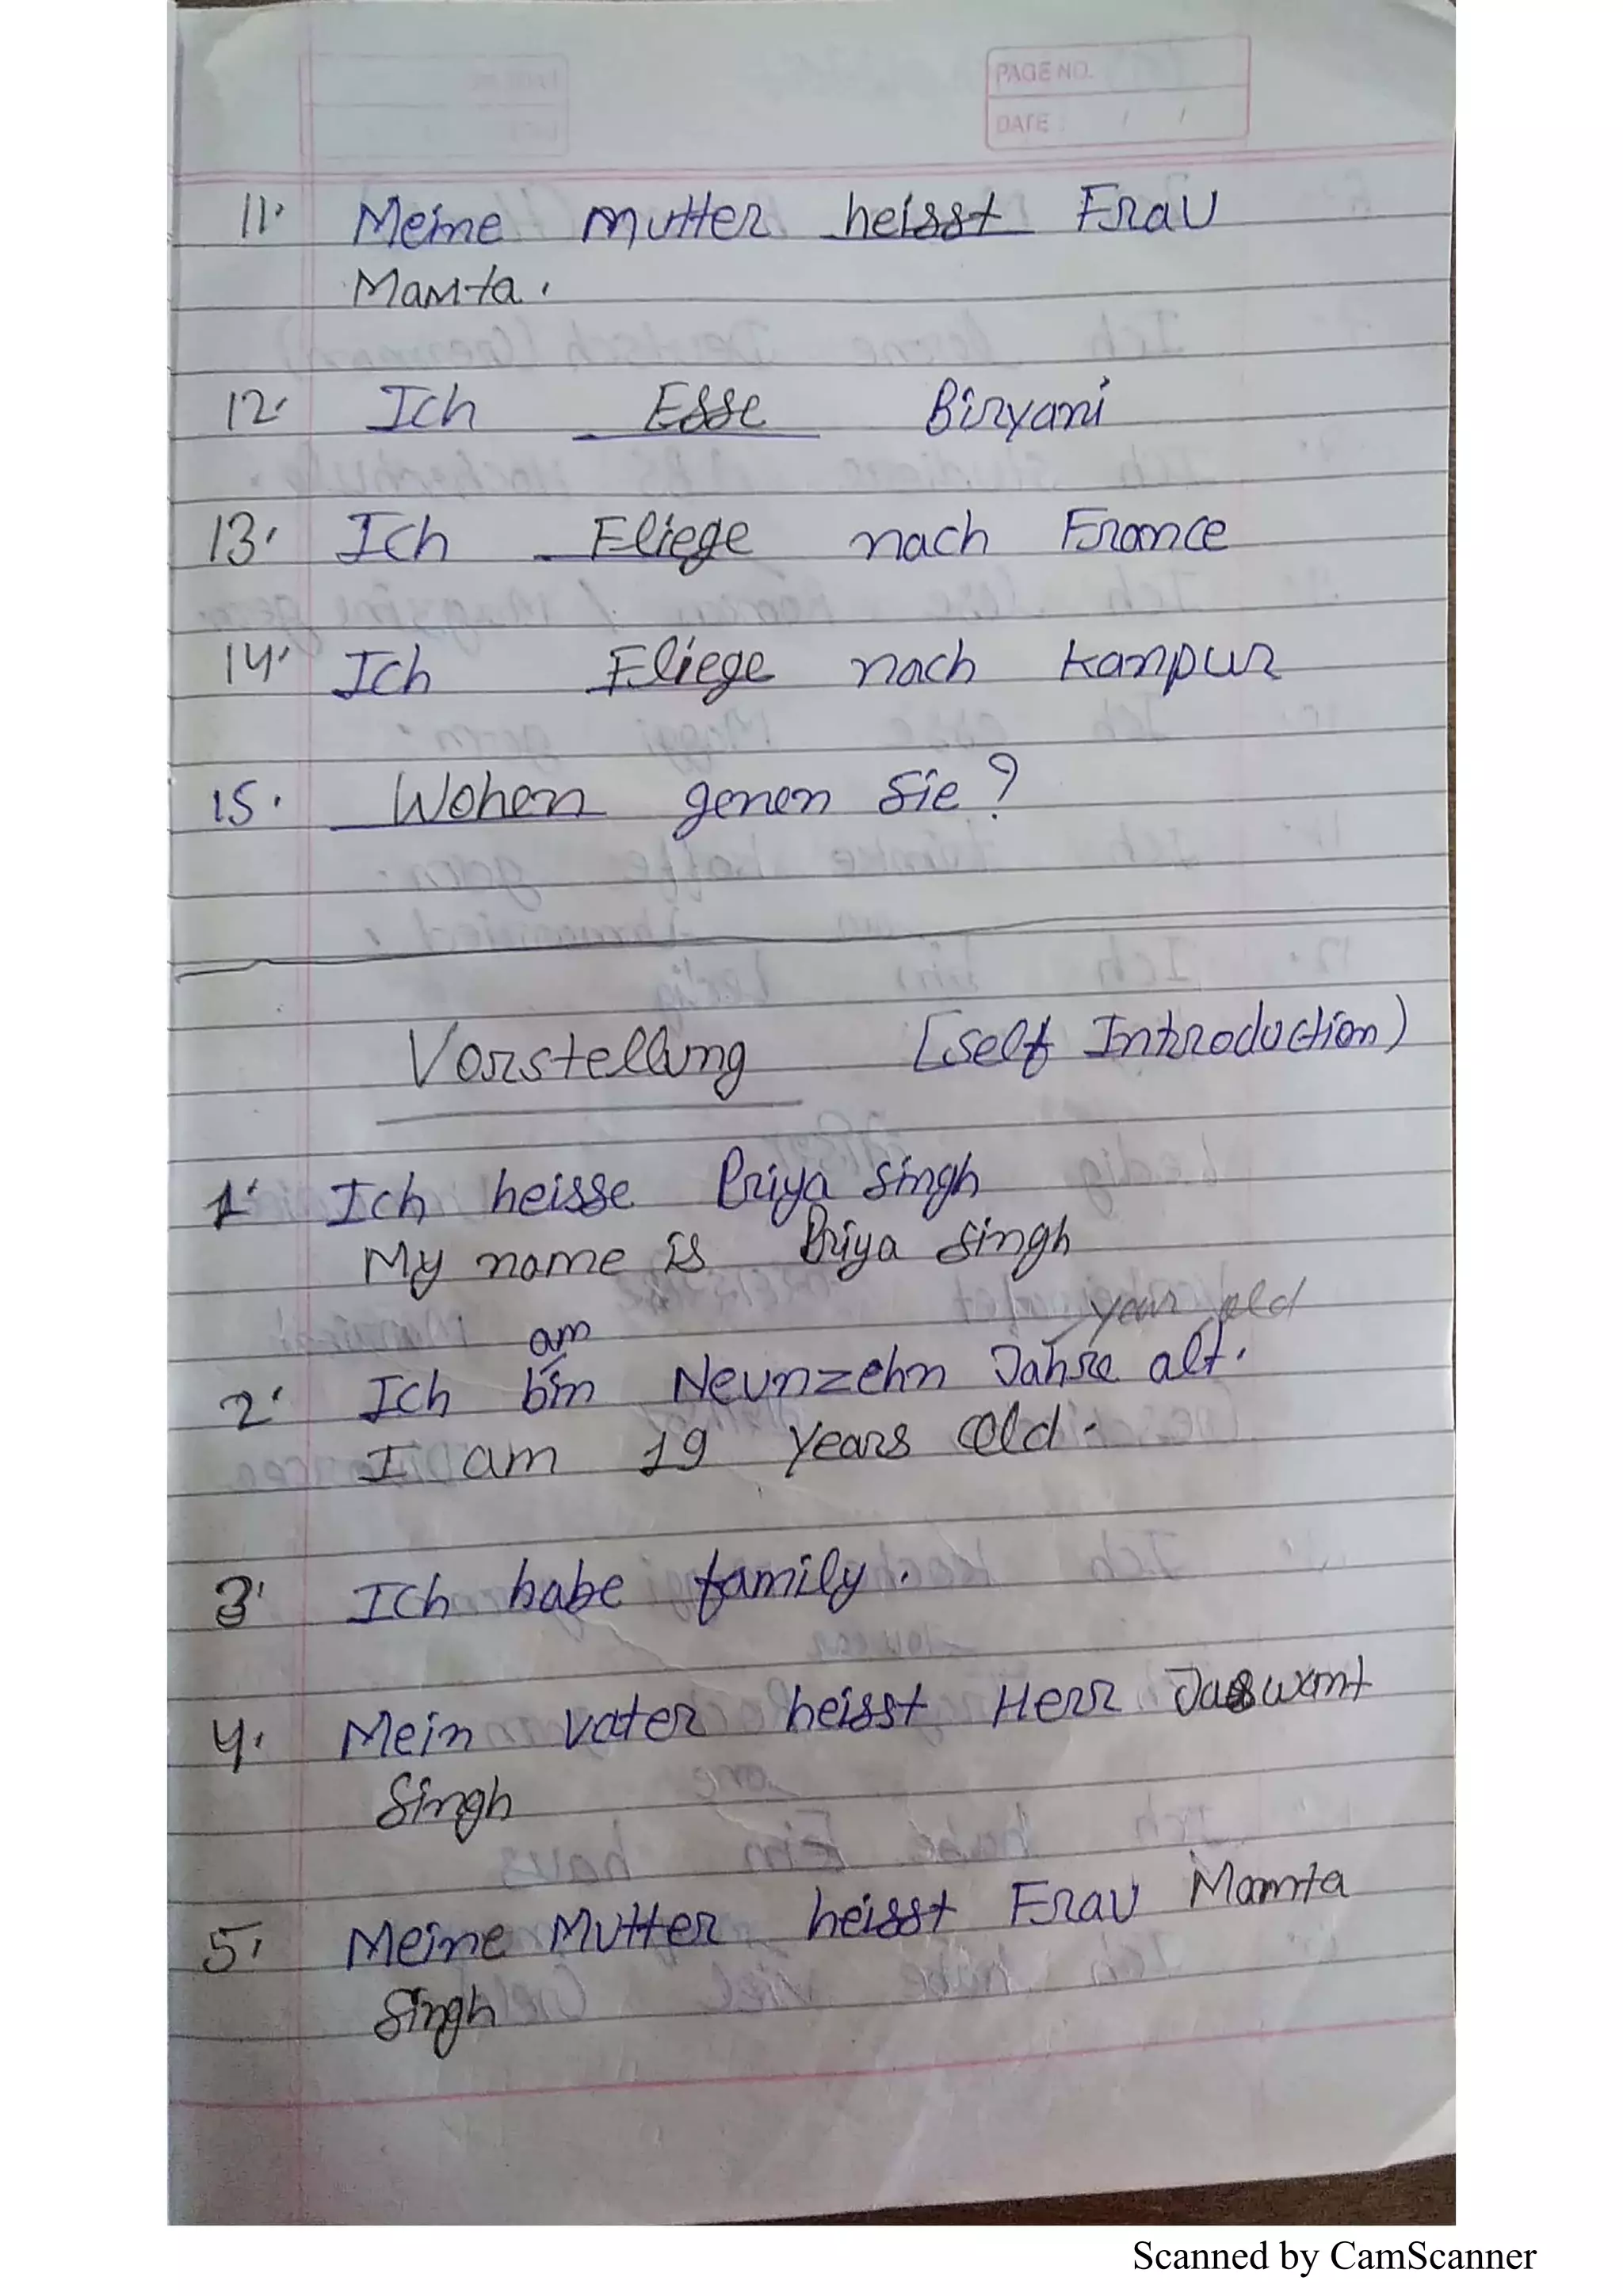 PAGE NO.
DATE : / /
11. Meine mutter heisst Frau
Mamta.
12. Ich Esse Biryani
13. Ich Fliege nach France
14. Ich Fliege nach Kanpur
15. Wohen genen Sie?
Vorstellung [self Introduction)
1. Ich heisse Priya Singh
My name is Priya Singh
am year old
2. Ich bin Neunzehn Jahre alt.
I am 19 Years Old.
3. Ich habe family.
4. Mein vater heisst Herr Jaswant
Singh
5. Meine Mutter heisst Frau Mamta
Singh
Scanned by CamScanner